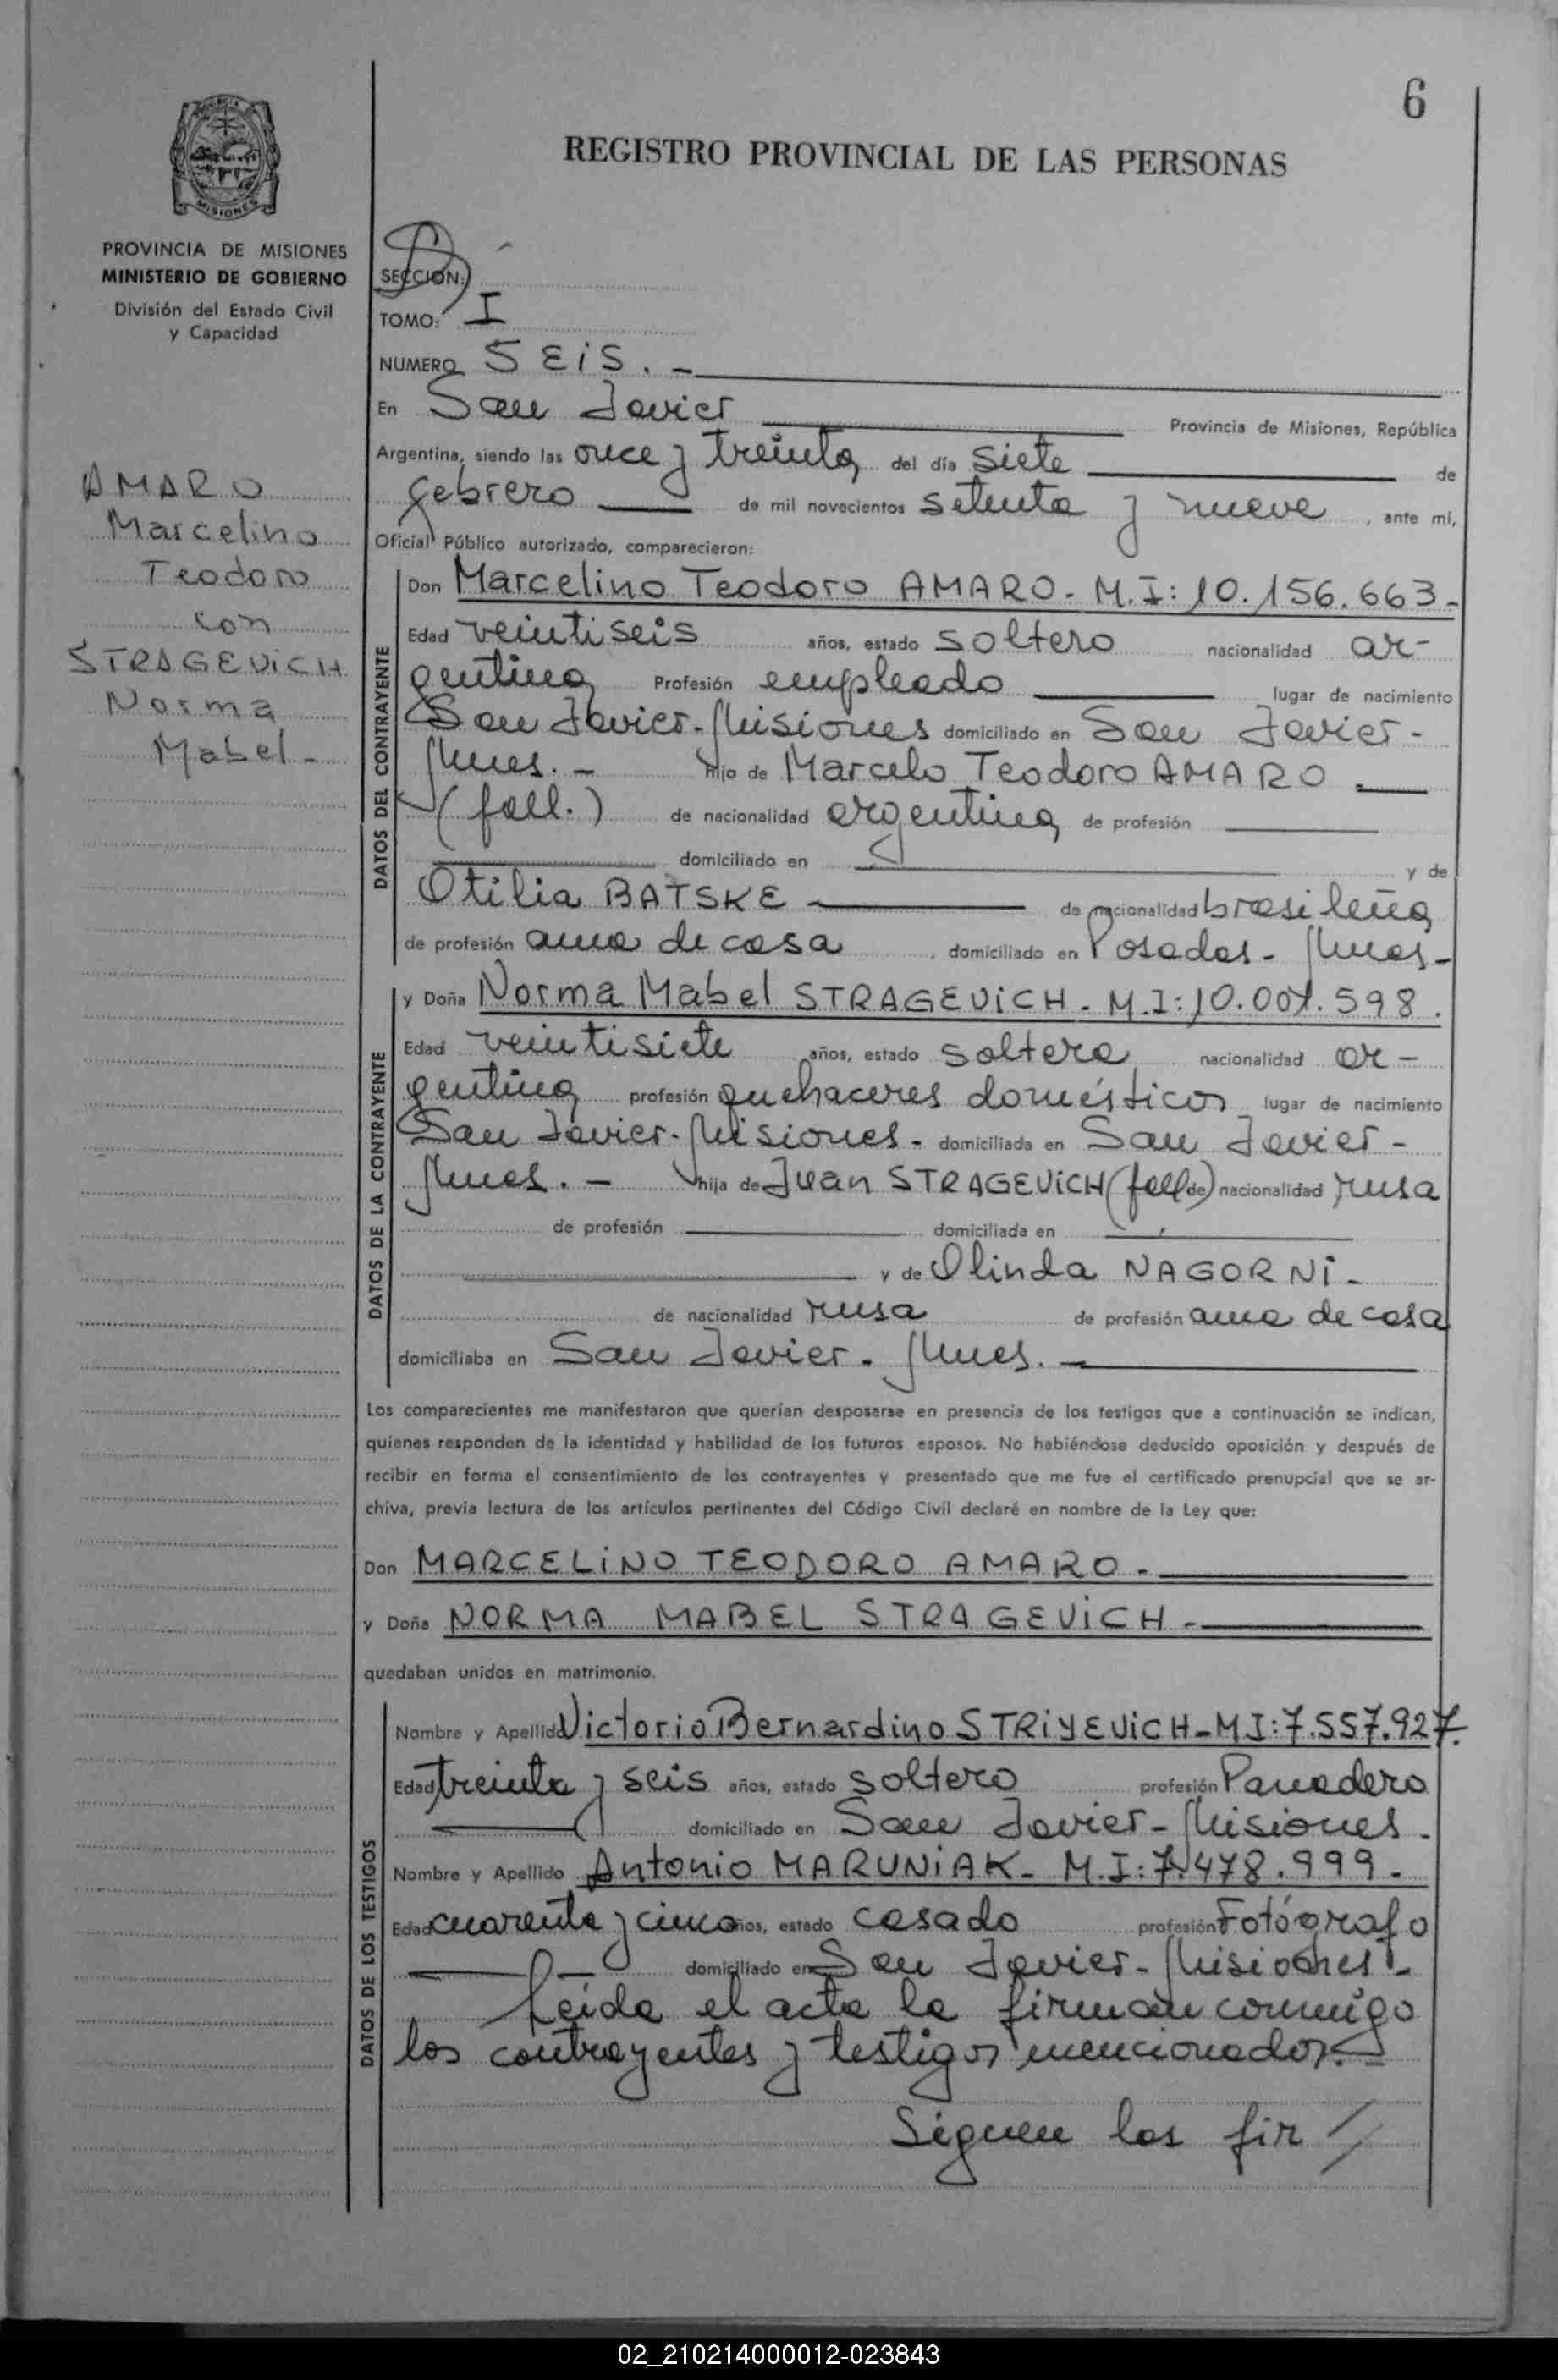 6
REGISTRO PROVINCIAL DE LAS PERSONAS
PROVINCIA DE MISIONES
MINISTERIO DE GOBIERNO
División del Estado Civil
y Capacidad
AMARO
Marcelino
Teodoro
con
STRAGEVICH
Norma
Mabel -
SECCION:
TOMO: I
NUMERO SEIS. -
En San Javier Provincia de Misiones, República
Argentina, siendo las once y treinta del día siete de
febrero de mil novecientos setenta y nueve, ante mí,
Oficial Público autorizado, comparecieron:
DATOS DEL CONTRAYENTE
Don Marcelino Teodoro AMARO - M.I: 10.156.663 -
Edad veintiseis años, estado soltero nacionalidad ar-
gentina Profesión empleado lugar de nacimiento
San Javier - Misiones domiciliado en San Javier -
Mnes. - hijo de Marcelo Teodoro AMARO -
(fall.) de nacionalidad argentina de profesión
domiciliado en y de
Otilia BATSKE de nacionalidad brasileña
de profesión ama de casa, domiciliado en Posadas - Mnes -
DATOS DE LA CONTRAYENTE
y Doña Norma Mabel STRAGEVICH - M.I: 10.001.598.
Edad veintisiete años, estado soltera nacionalidad ar-
gentina profesión quehaceres domésticos lugar de nacimiento
San Javier - Misiones - domiciliada en San Javier -
Mnes. - hija de Juan STRAGEVICH (fall) de nacionalidad rusa
de profesión domiciliada en
y de Olinda NAGORNI -
de nacionalidad rusa de profesión ama de casa
domiciliaba en San Javier - Mnes. -
Los comparecientes me manifestaron que querían desposarse en presencia de los testigos que a continuación se indican,
quienes responden de la identidad y habilidad de los futuros esposos. No habiéndose deducido oposición y después de
recibir en forma el consentimiento de los contrayentes y presentado que me fue el certificado prenupcial que se ar-
chiva, previa lectura de los artículos pertinentes del Código Civil declaré en nombre de la Ley que:
Don MARCELINO TEODORO AMARO -
y Doña NORMA MABEL STRAGEVICH -
quedaban unidos en matrimonio.
DATOS DE LOS TESTIGOS
Nombre y Apellido Victorio Bernardino STRIYEVICH - MI: 7.557.927.
Edad treinta y seis años, estado soltero profesión Panadero
domiciliado en San Javier - Misiones -
Nombre y Apellido Antonio MARUNIAK - M.I: 7.478.999 -
Edad cuarenta y cinco años, estado casado profesión Fotógrafo
domiciliado en San Javier - Misiones -
Leída el acta la firman conmigo
los contrayentes y testigos mencionados. -
Siguen las fir //
02_210214000012-023843